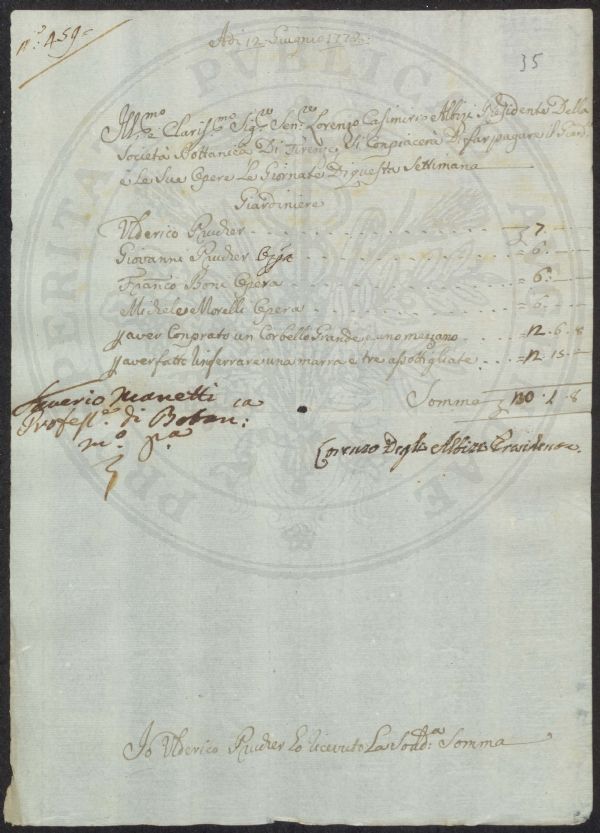 nº: 459
Adì 12 Giugnio 1772:
35
Ill.mo e Claris.mo Sig.re Sen.re Lorenzo Casimeri Albizi Presidente Della
Società Bottanica Di Firenze Si Conpiacerà Di far pagare
e Le Sue Opere Le Giornate Di questa Settimana
Giardiniere
Ulderico 7
Giovanni Opra = 6
Franco Boni Opera = 6
Michele Morelli Opera = 6
p aver Conprato un Corbello Grande e uno mezzano = 12 . 6 . 8
p aver fatto Rinferrare una marra e tre assottigliate = 12 . 15
Somma
Saverio Manetti
Profess.e di Botan:ca
m.o p.a
Lorenzo Degli Albizi Presidente
Io Ulderico ho ricevuto La Sodd.a Somma
PUBLICAE
PROSPERITATI